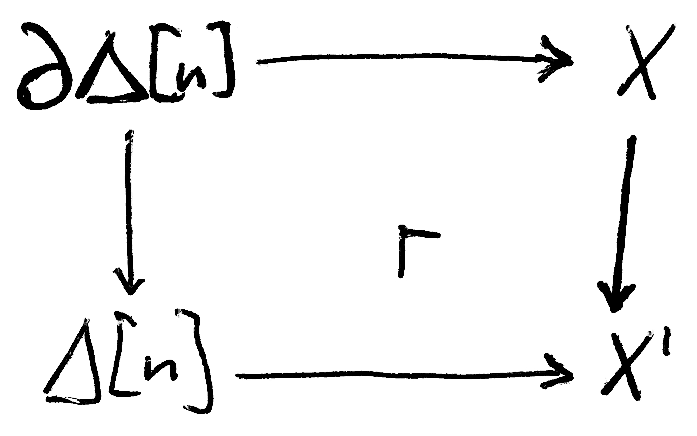 ∂Δ[n] X
Δ[n] X'